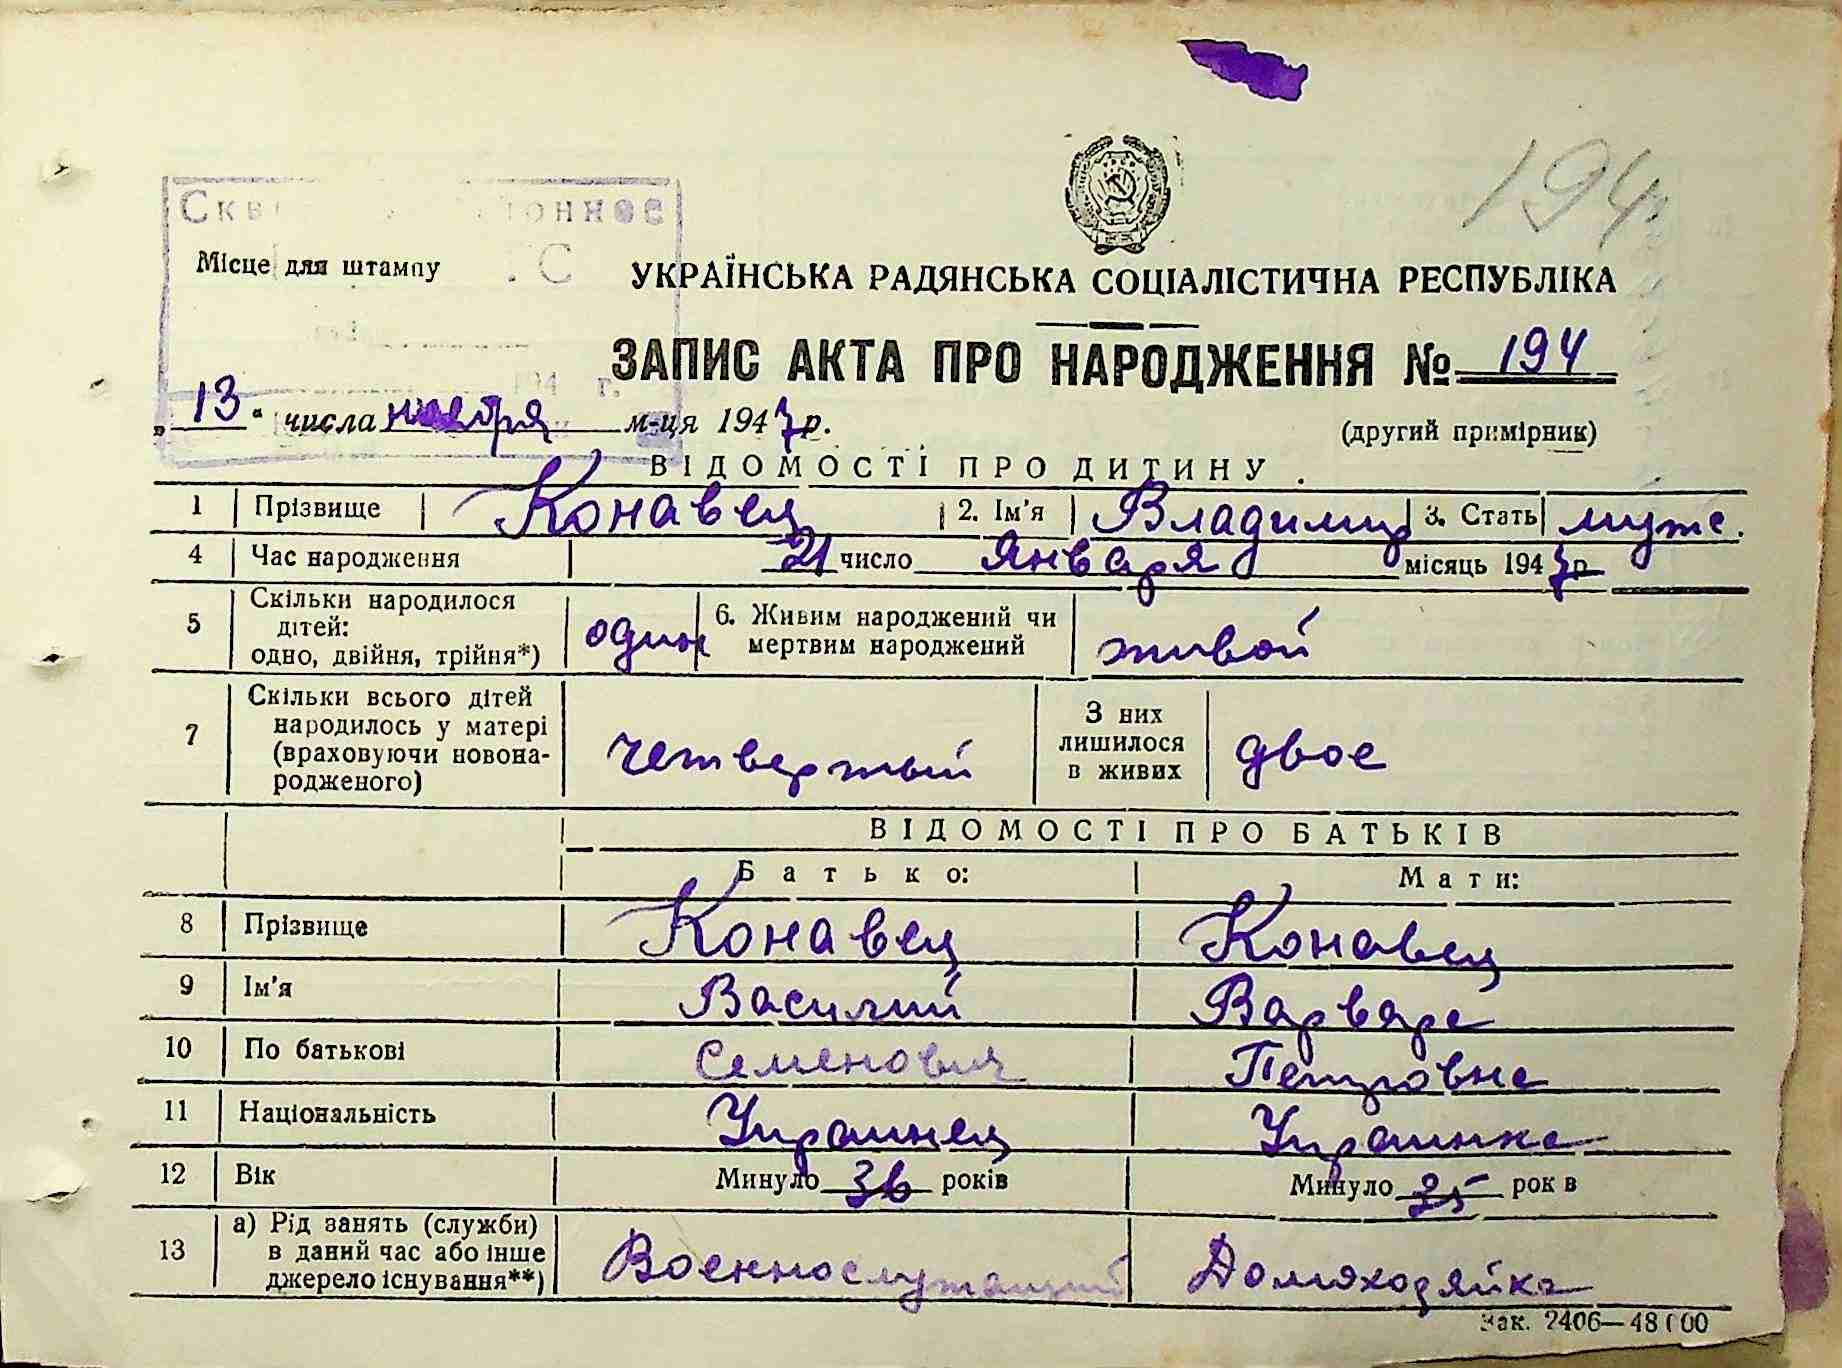 194
Місце для штампу
УКРАЇНСЬКА РАДЯНСЬКА СОЦІАЛІСТИЧНА РЕСПУБЛІКА
ЗАПИС АКТА ПРО НАРОДЖЕННЯ № 194
„13“ числа ноября м-ця 1947 р.
(другий примірник)
ВІДОМОСТІ ПРО ДИТИНУ.
1 Прізвище Конавец 2. Ім'я Владимир 3. Стать мужс.
4 Час народження 21 число января місяць 1947 р
5 Скільки народилося дітей: одно, двійня, трійня*) один 6. Живим народжений чи мертвим народжений живой
7 Скільки всього дітей народилось у матері (враховуючи новонародженого) четвертый З них лишилося в живих двое
ВІДОМОСТІ ПРО БАТЬКІВ
Батько: Мати:
8 Прізвище Конавец Конавец
9 Ім'я Василий Варвара
10 По батькові Семенович Петровна
11 Національність Украинец Украинка
12 Вік Минуло 36 років Минуло 35 рок в
13 а) Рід занять (служби) в даний час або інше джерело існування**) Военнослужащий Домохозяйка
Зак. 2406—48000